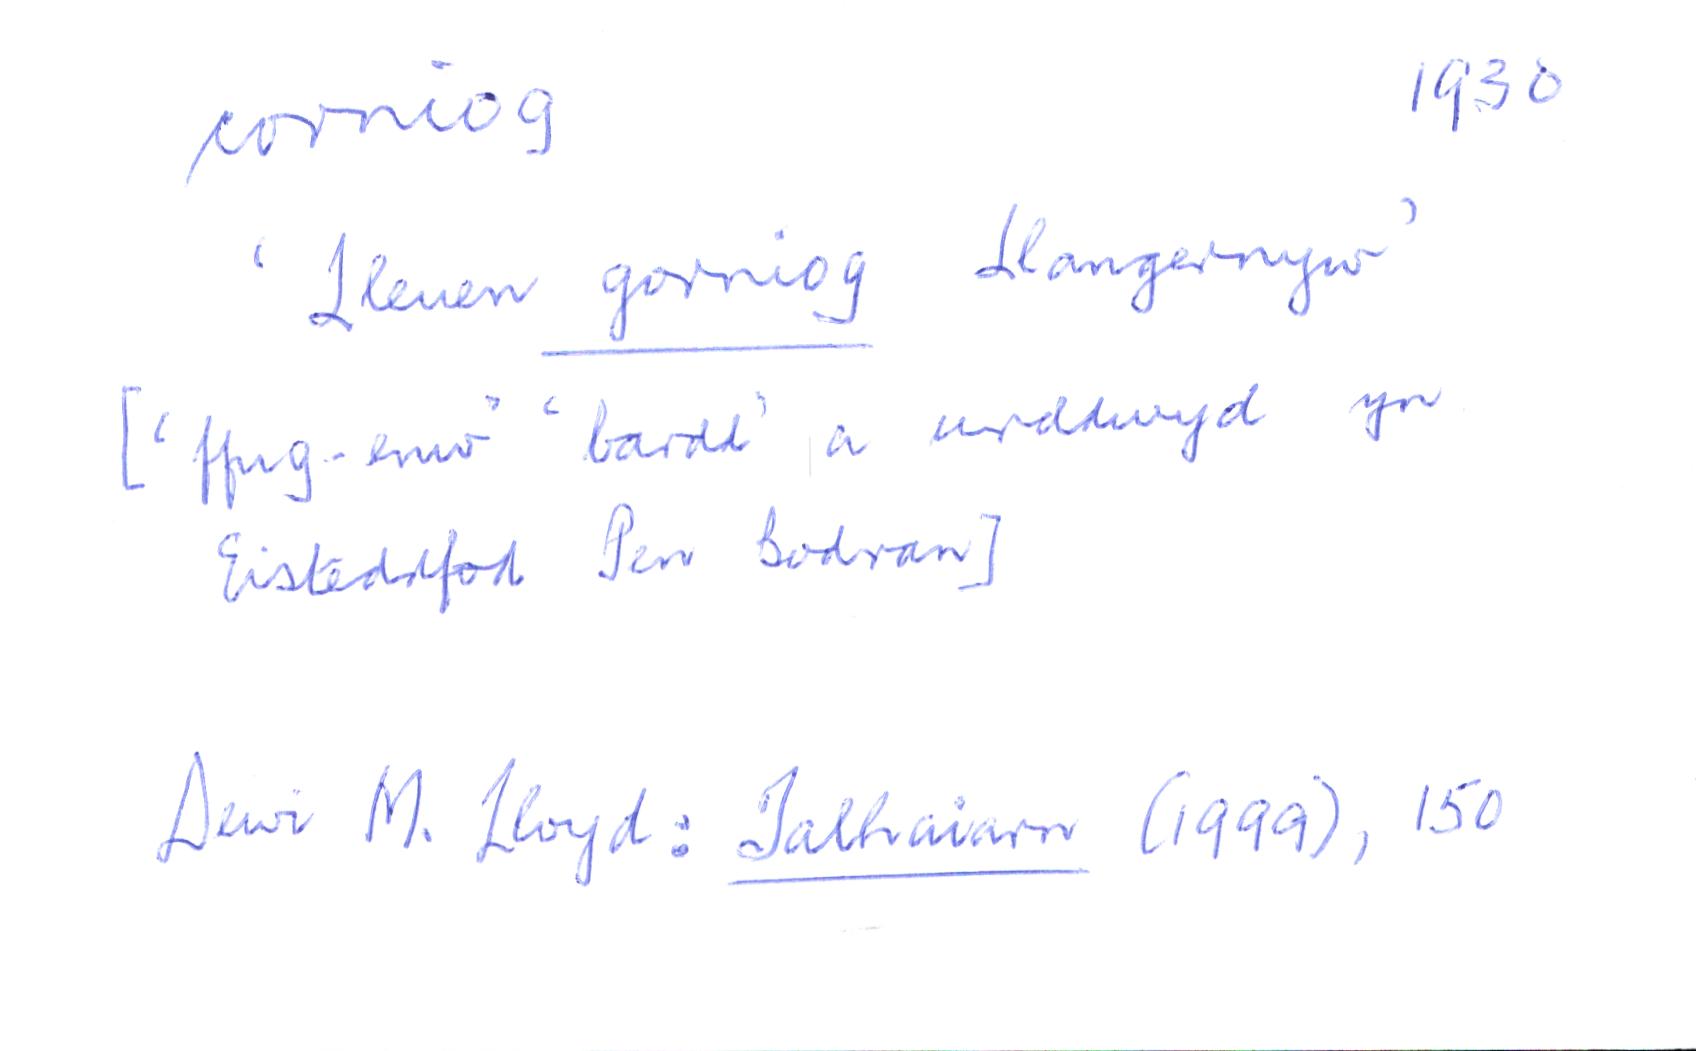 corniog 1930
‘Lleuen gorniog Llangernyw’
[‘ffug-enw’ ‘bardd’ a urddwyd yn
Eisteddfod Pen Bodran]
Dewi M. Lloyd: Talhaiarn (1999), 150